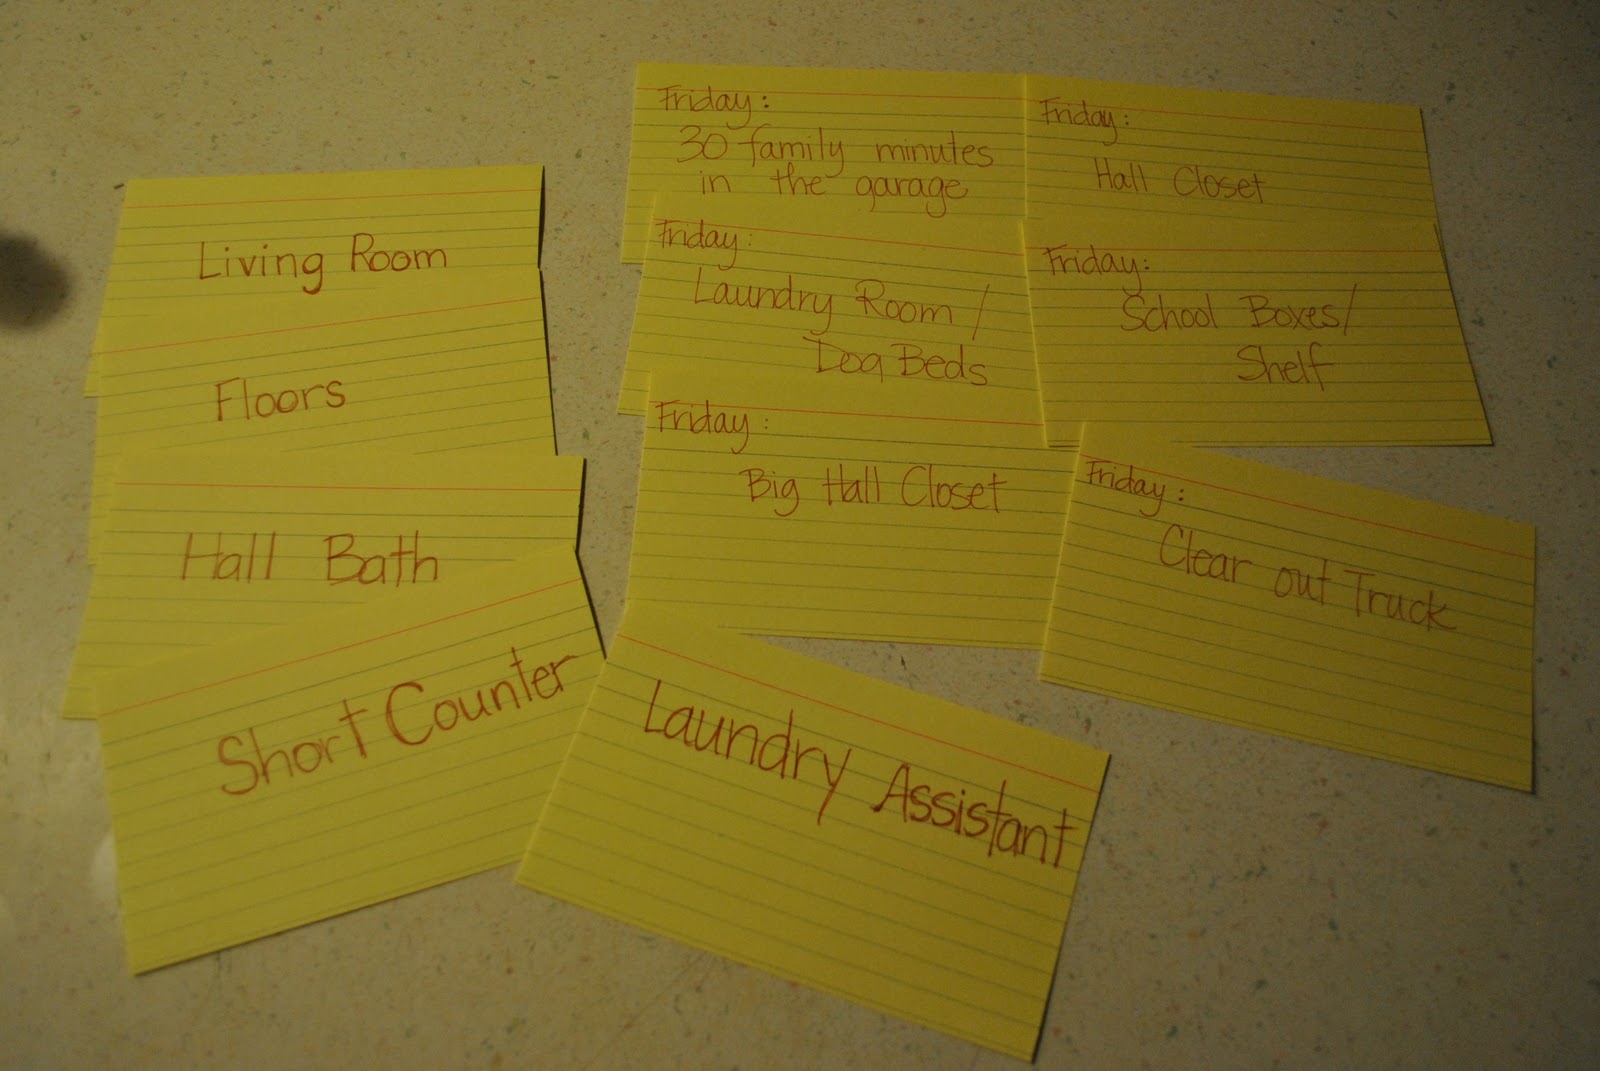 Living Room
Floors
Hall Bath
Short Counter
Laundry Assistant
Friday:
30 family minutes
in the garage
Friday:
Laundry Room /
Dog Beds
Friday:
Big Hall Closet
Friday:
Hall Closet
Friday:
School Boxes/
Shelf
Friday:
Clear out Truck